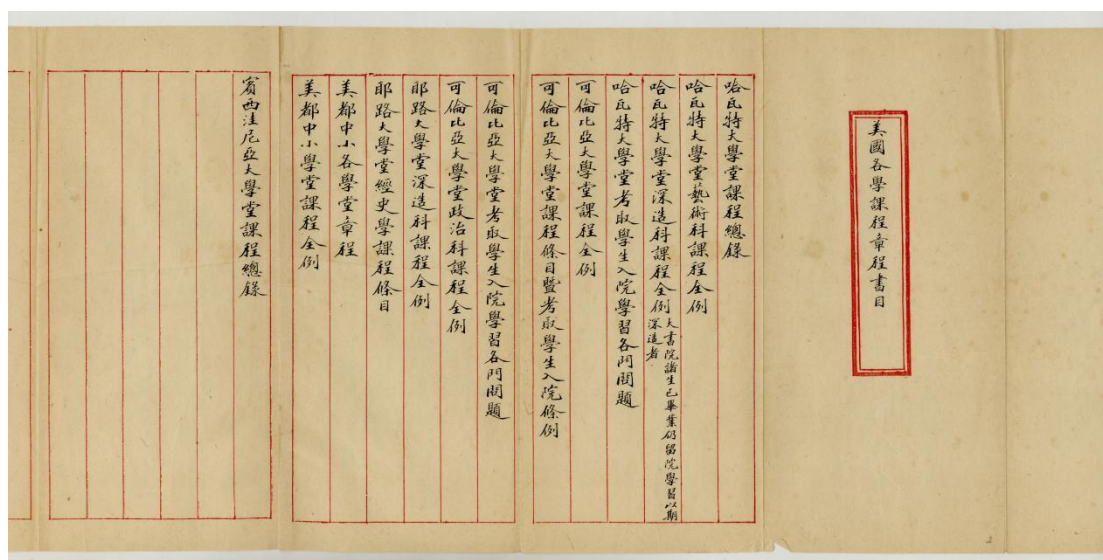 美國各學課程章程書目
哈瓦特大學堂課程總錄
哈瓦特大學堂藝術科課程全例
哈瓦特大學堂深造科課程全例大書院諸生已畢業仍留院學習以期深造者
哈瓦特大學堂考取學生入院學習各門問題
可倫比亞大學堂課程全例
可倫比亞大學堂課程條目暨考取學生入院條例
可倫比亞大學堂考取學生入院學習各門問題
可倫比亞大學堂政治科課程全例
耶路大學堂深造科課程全例
耶路大學堂經史學課程條目
美都中小各學堂章程
美都中小學堂課程全例
賓西洼尼亞大學堂課程總錄